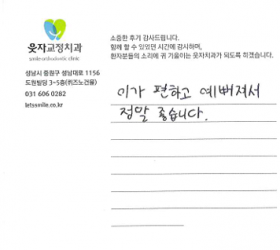 웃자교정치과
smile orthodontic clinic
성남시 중원구 성남대로 1156
도원빌딩 3~5층(퀴즈노건물)
031 606 0282
letssmile.co.kr
소중한 후기 감사드립니다.
함께 할 수 있었던 시간에 감사하며,
환자분들의 소리에 귀 기울이는 웃자치과가 되도록 하겠습니다.
이가 편하고 예뻐져서
정말 좋습니다.